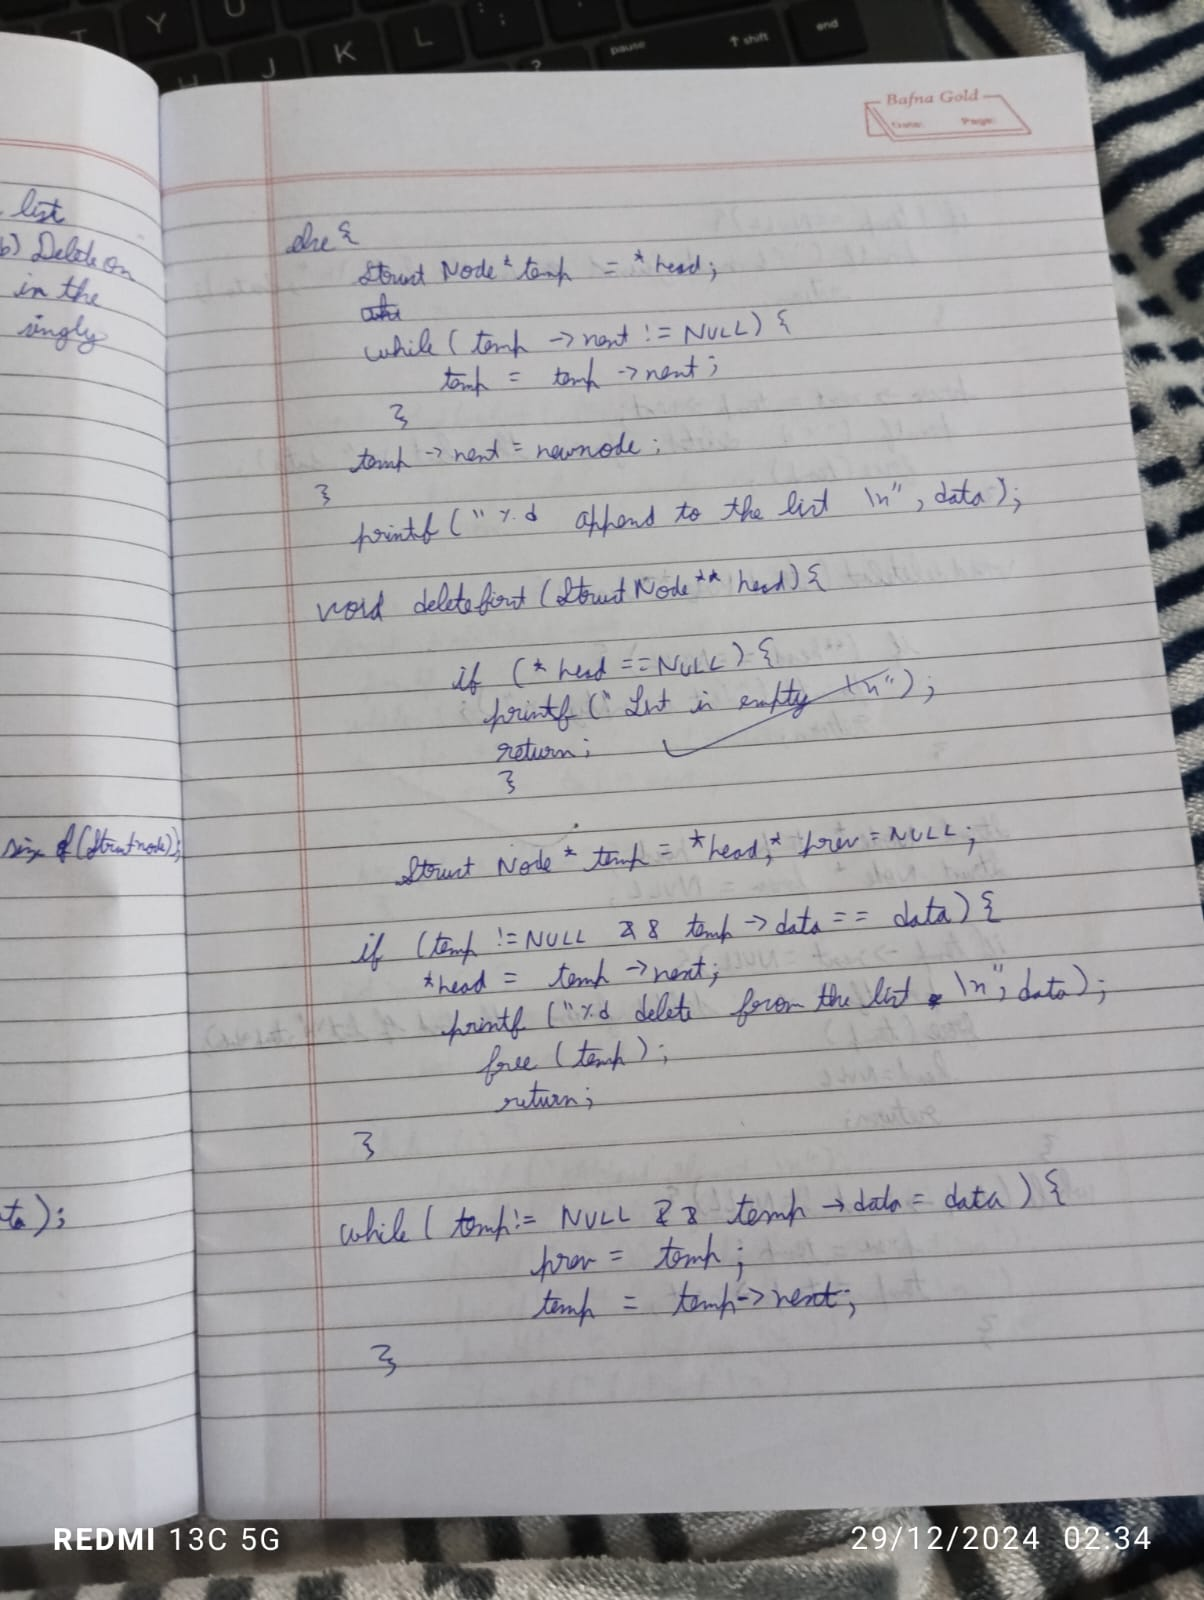 Bafna Gold
Date: Page:
list
b) Delete on
in the
singly
size of (Struct node));
ta);
else {
Struct Node * temp = *head;
while ( temp -> next != NULL) {
temp = temp -> next;
}
temp -> next = newnode;
}
printf (" %d append to the list \n", data );
void delete first ( Struct Node ** head) {
if (* head == NULL) {
printf (" List is empty \n");
return;
}
Struct Node * temp = *head, * prev = NULL;
if (temp != NULL && temp -> data == data) {
*head = temp -> next;
printf ("%d delete from the list \n", data);
free (temp);
return;
}
while ( temp != NULL && temp -> data = data ) {
prev = temp;
temp = temp -> next;
}
Y U J K L
pause ↑ shift end
REDMI 13C 5G 29/12/2024 02:34